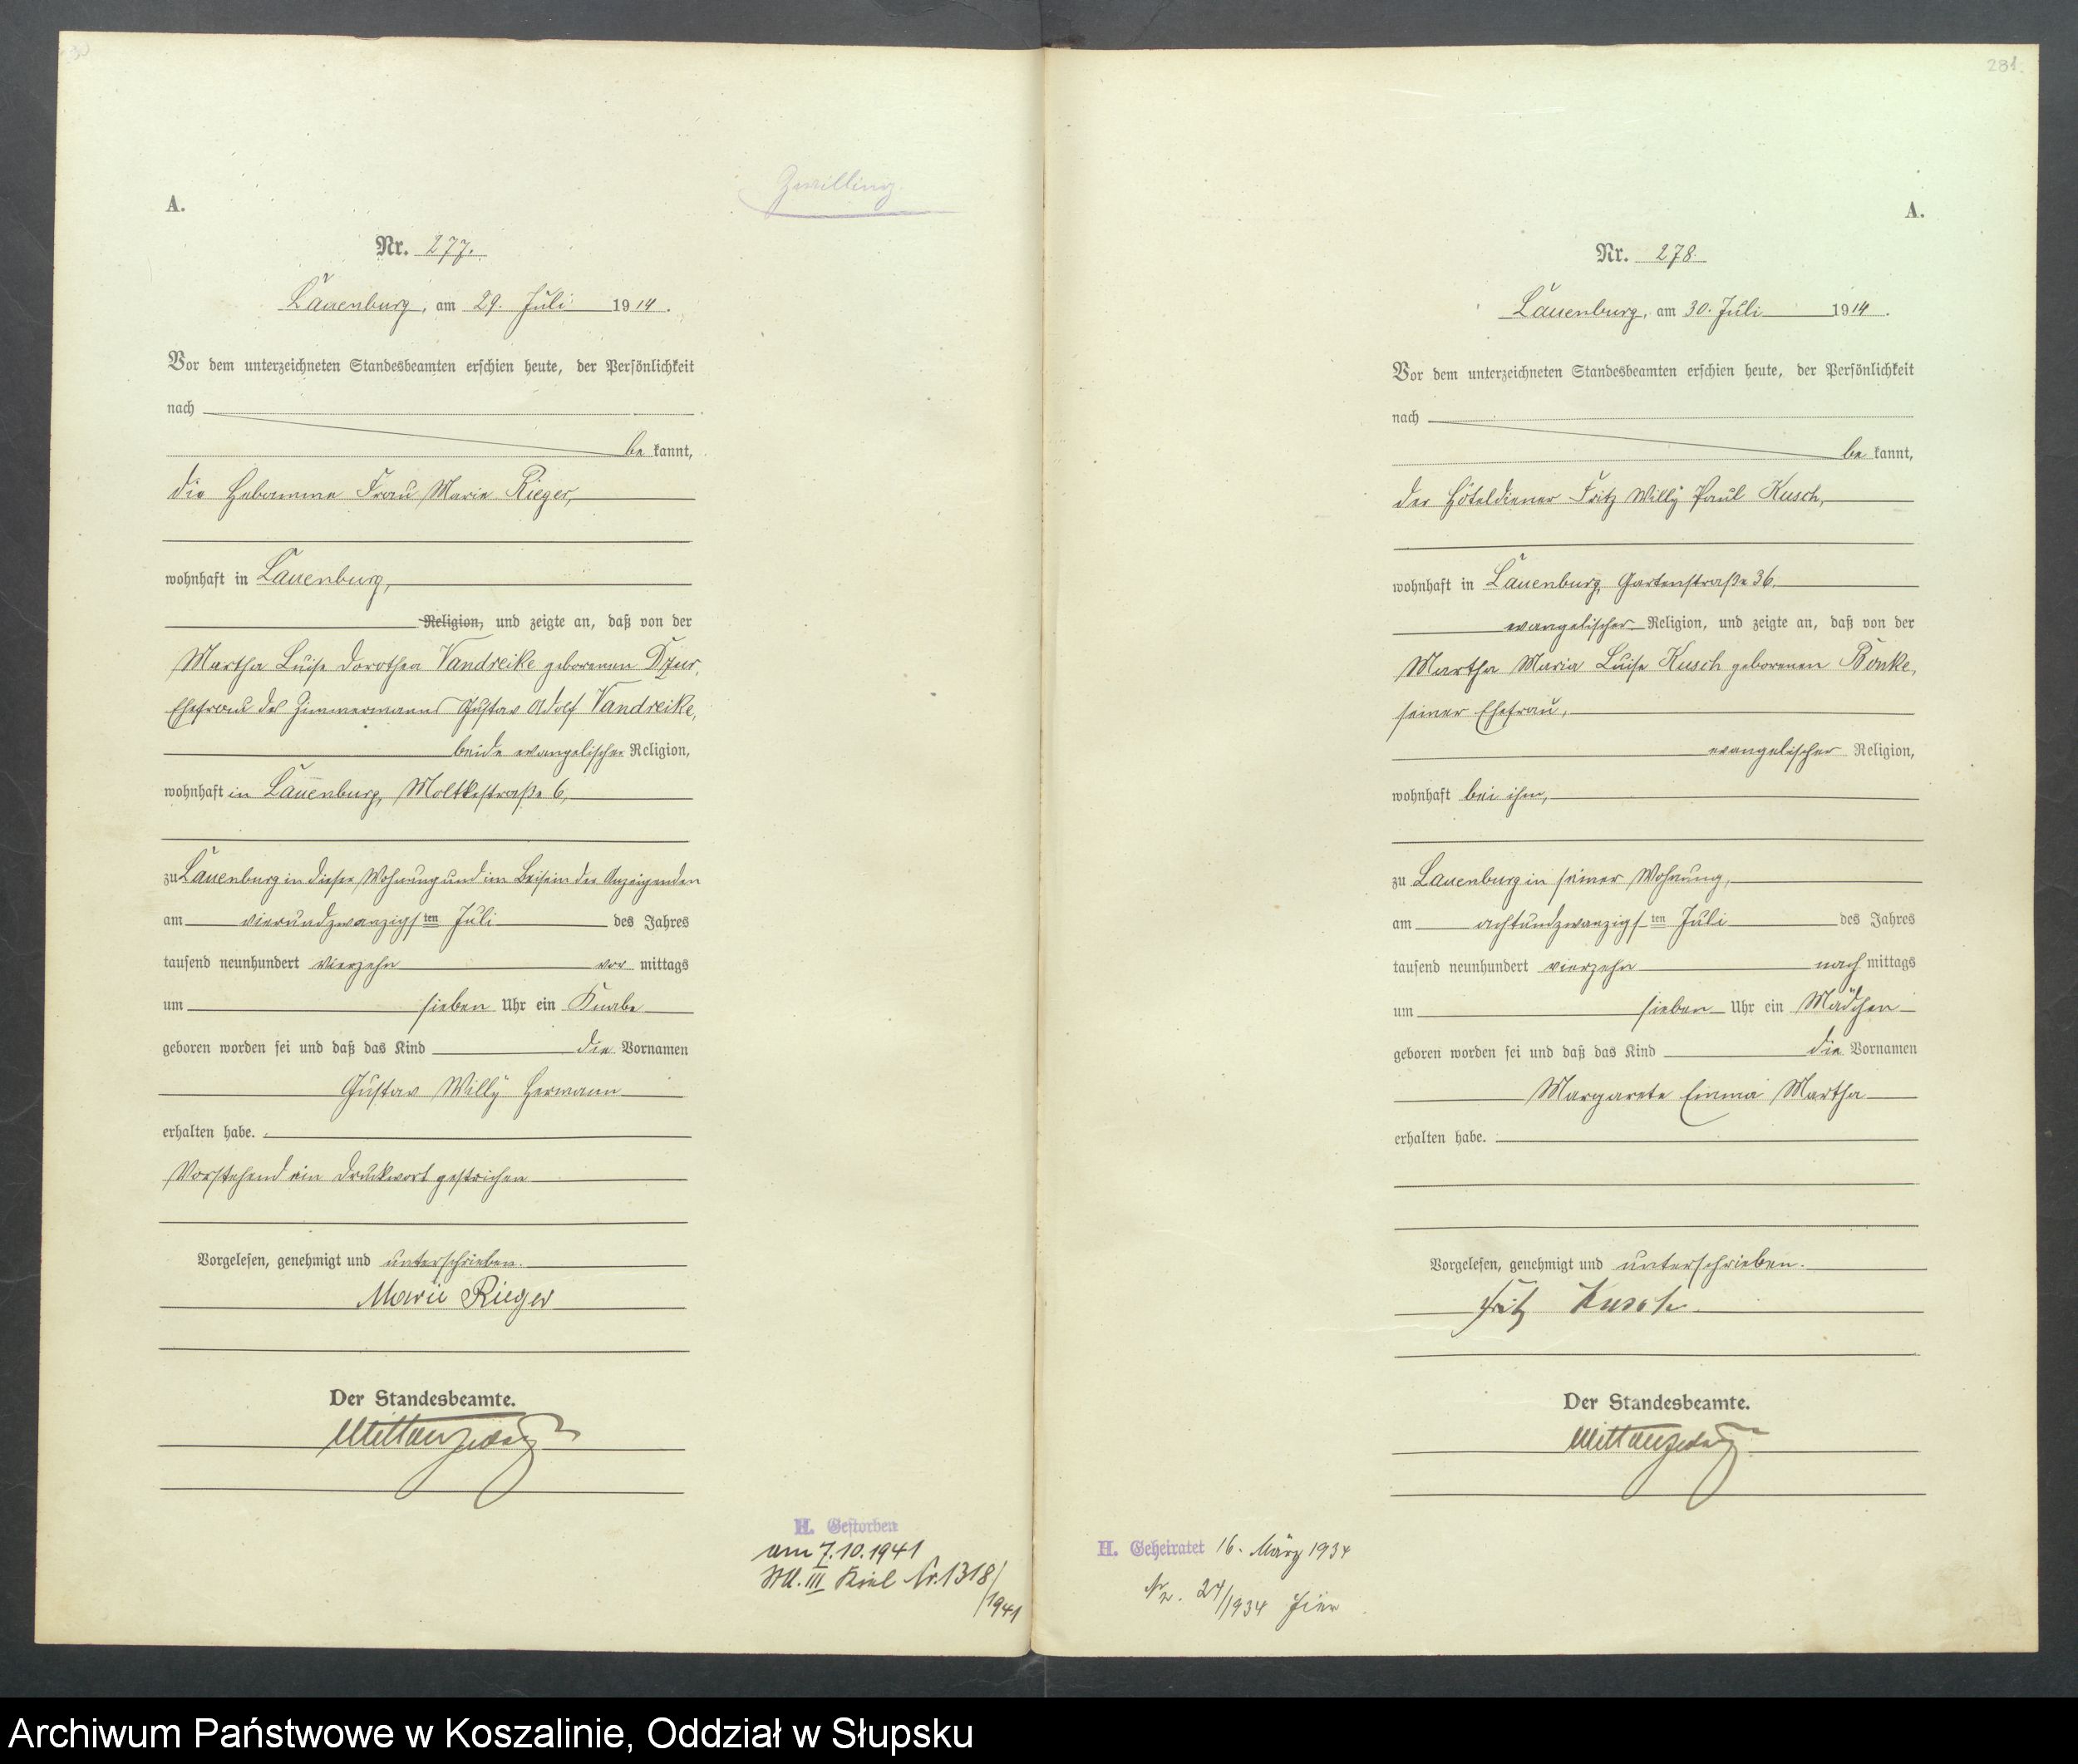 A.
Zwilling.
Nr. 277.
Lauenburg, am 29. Juli 1914.
Vor dem unterzeichneten Standesbeamten erschien heute, der Persönlichkeit
nach
be kannt,
die Hebamme Frau Marie Rieger,
wohnhaft in Lauenburg,
Religion, und zeigte an, daß von der
Martha Luise Dorothea Vandreike geborenen Dzur,
Ehefrau des Zimmermanns Gustav Adolf Vandreike,
beide evangelischer Religion,
wohnhaft in Lauenburg, Moltkestraße 6,
zu Lauenburg in dieser Wohnung und im Beisein der Anzeigenden
am vierundzwanzigsten Juli des Jahres
tausend neunhundert vierzehn vor mittags
um sieben Uhr ein Knabe
geboren worden sei und daß das Kind die Vornamen
Gustav Willy Hermann
erhalten habe.
Vorstehend ein Druckwort gestrichen
Vorgelesen, genehmigt und unterschrieben.
Marie Rieger
Der Standesbeamte.
H. Gestorben
am 7.10.1941
StA. III Kiel Nr. 1318/
1941
281.
A.
Nr. 278.
Lauenburg, am 30. Juli 1914.
Vor dem unterzeichneten Standesbeamten erschien heute, der Persönlichkeit
nach
be kannt,
der Hôteldiener Fritz Willy Paul Kusch,
wohnhaft in Lauenburg, Gartenstraße 36,
evangelischer Religion, und zeigte an, daß von der
Martha Maria Luise Kusch geborenen Bonke,
seiner Ehefrau,
evangelischer Religion,
wohnhaft bei ihm,
zu Lauenburg in seiner Wohnung,
am achtundzwanzigsten Juli des Jahres
tausend neunhundert vierzehn nach mittags
um sieben Uhr ein Mädchen
geboren worden sei und daß das Kind die Vornamen
Margarete Emma Martha
erhalten habe.
Vorgelesen, genehmigt und unterschrieben.
Fritz Kusch
Der Standesbeamte.
H. Geheiratet 16. März 1934
Nr. 24/1934 hier
Archiwum Państwowe w Koszalinie, Oddział w Słupsku